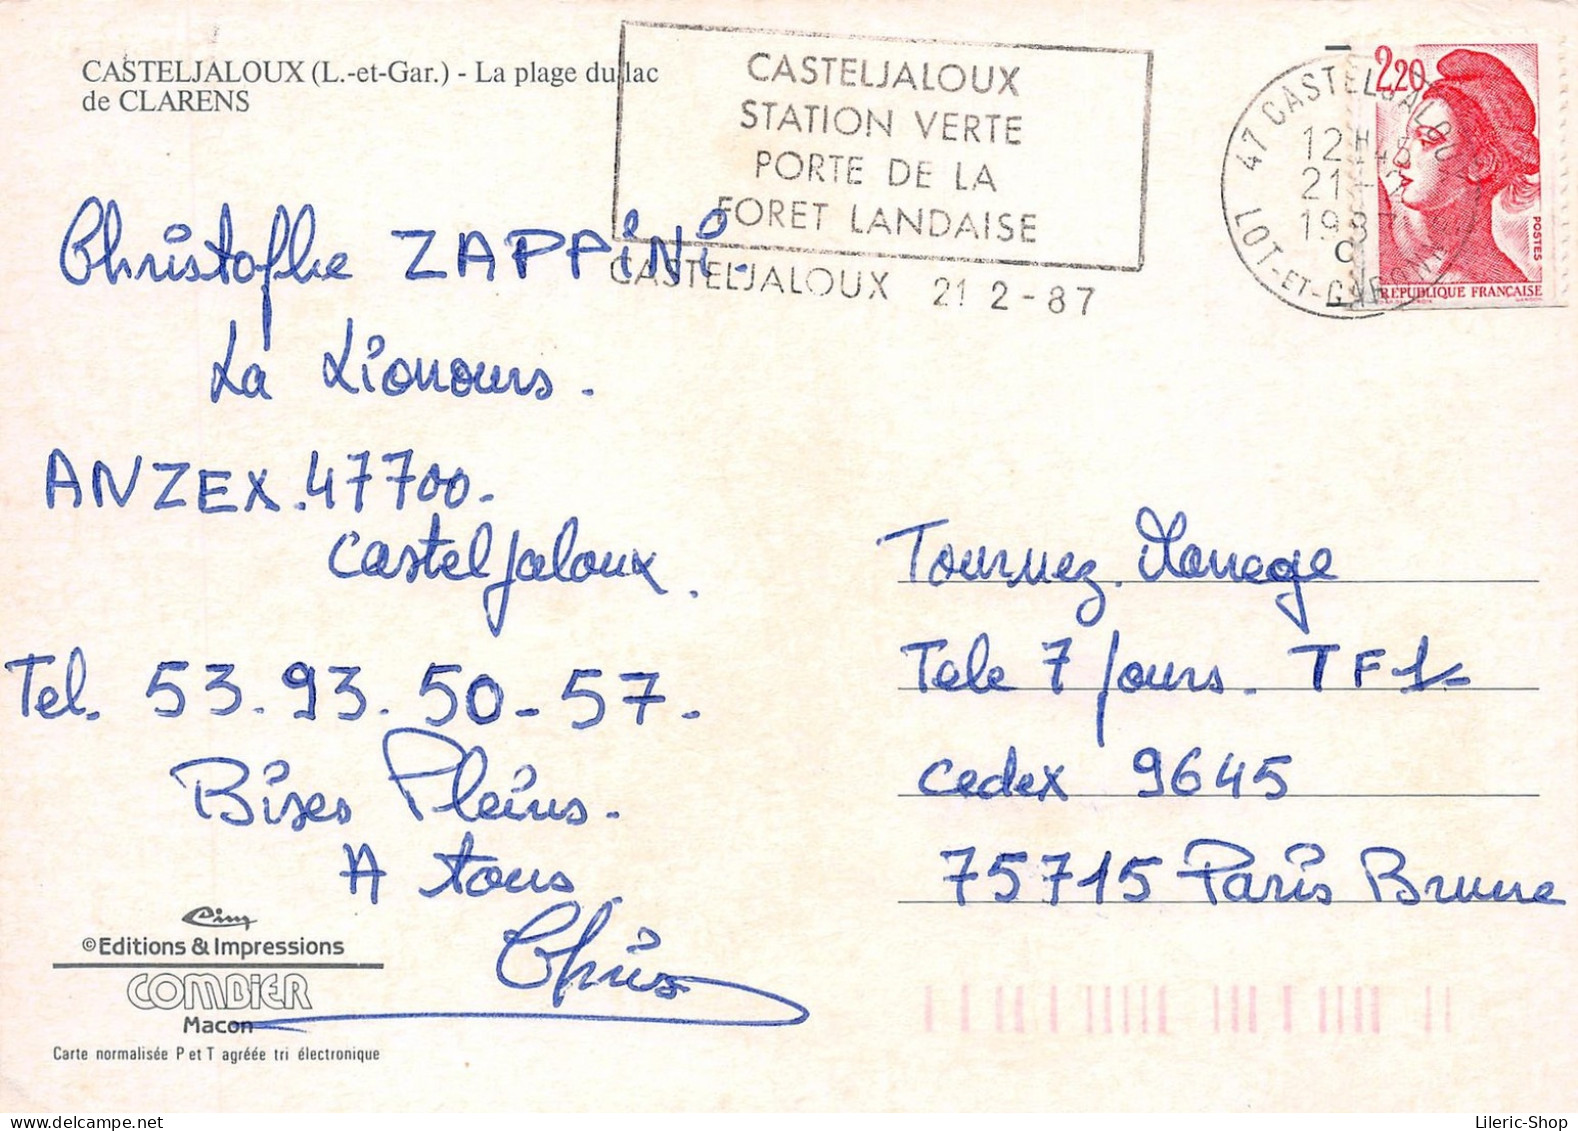 CASTELJALOUX (L.-et-Gar.) - La plage du lac
de CLARENS
CASTELJALOUX
STATION VERTE
PORTE DE LA
FORET LANDAISE
CASTELJALOUX 21 2-87
47 CASTELJALOUX
12H45
21-2
1987
LOT-ET-GARONNE
2,20
POSTES
REPUBLIQUE FRANÇAISE
Christophe ZAPPiNi.
La Lionours.
ANZEX.47700-
Casteljaloux.
Tel. 53.93.50-57.
Bises Pleins.
A tous
Chris
Tournez. Manege
Tele 7 Jours. TF1-
Cedex 9645
75715 Paris Brune
Cim
©Editions & Impressions
COMBIER
Macon
Carte normalisée P et T agréée tri électronique
Lileric-Shop